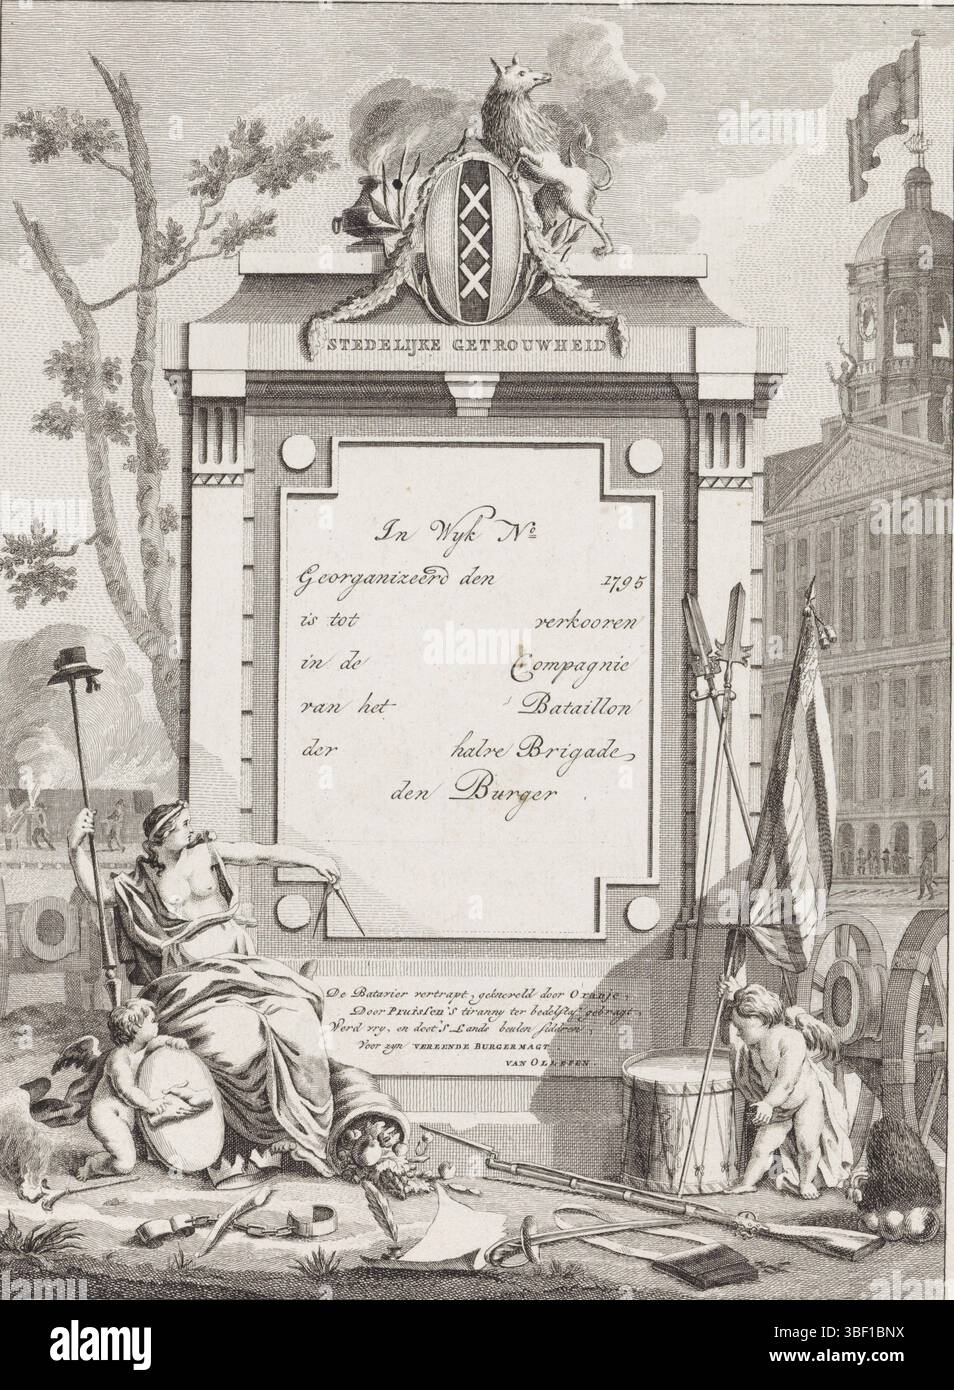 STEDELIJKE GETROUWHEID
In Wyk No.
Georganizeerd den 1795
is tot verkooren
in de Compagnie
van het Bataillon
der halve Brigade,
den Burger
De Batavier vertrapt, gekneveld door Oranje,
Door Pruissen's tiranny ter bedelstaf gebragt,
Werd vry, en doet 's Lands beulen sidderen,
Voor zyn VEREENDE BURGERMAGT
VAN OLLEFEN.
alamy
Image ID: 3BF1BNX
www.alamy.com